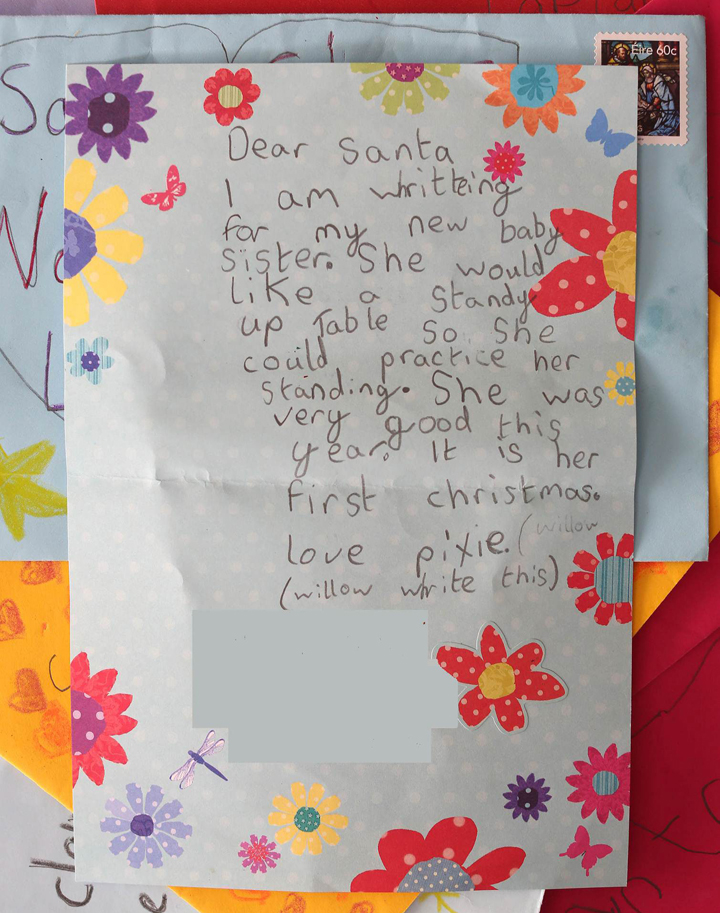 Éire 60c
Dear Santa
I am whritteing
for my new baby
sister. She would
like a standy
up Table so she
could practice her
standing. She was
very good this
year. It is her
first christmas.
love pixie. (willow
(willow whrite this)